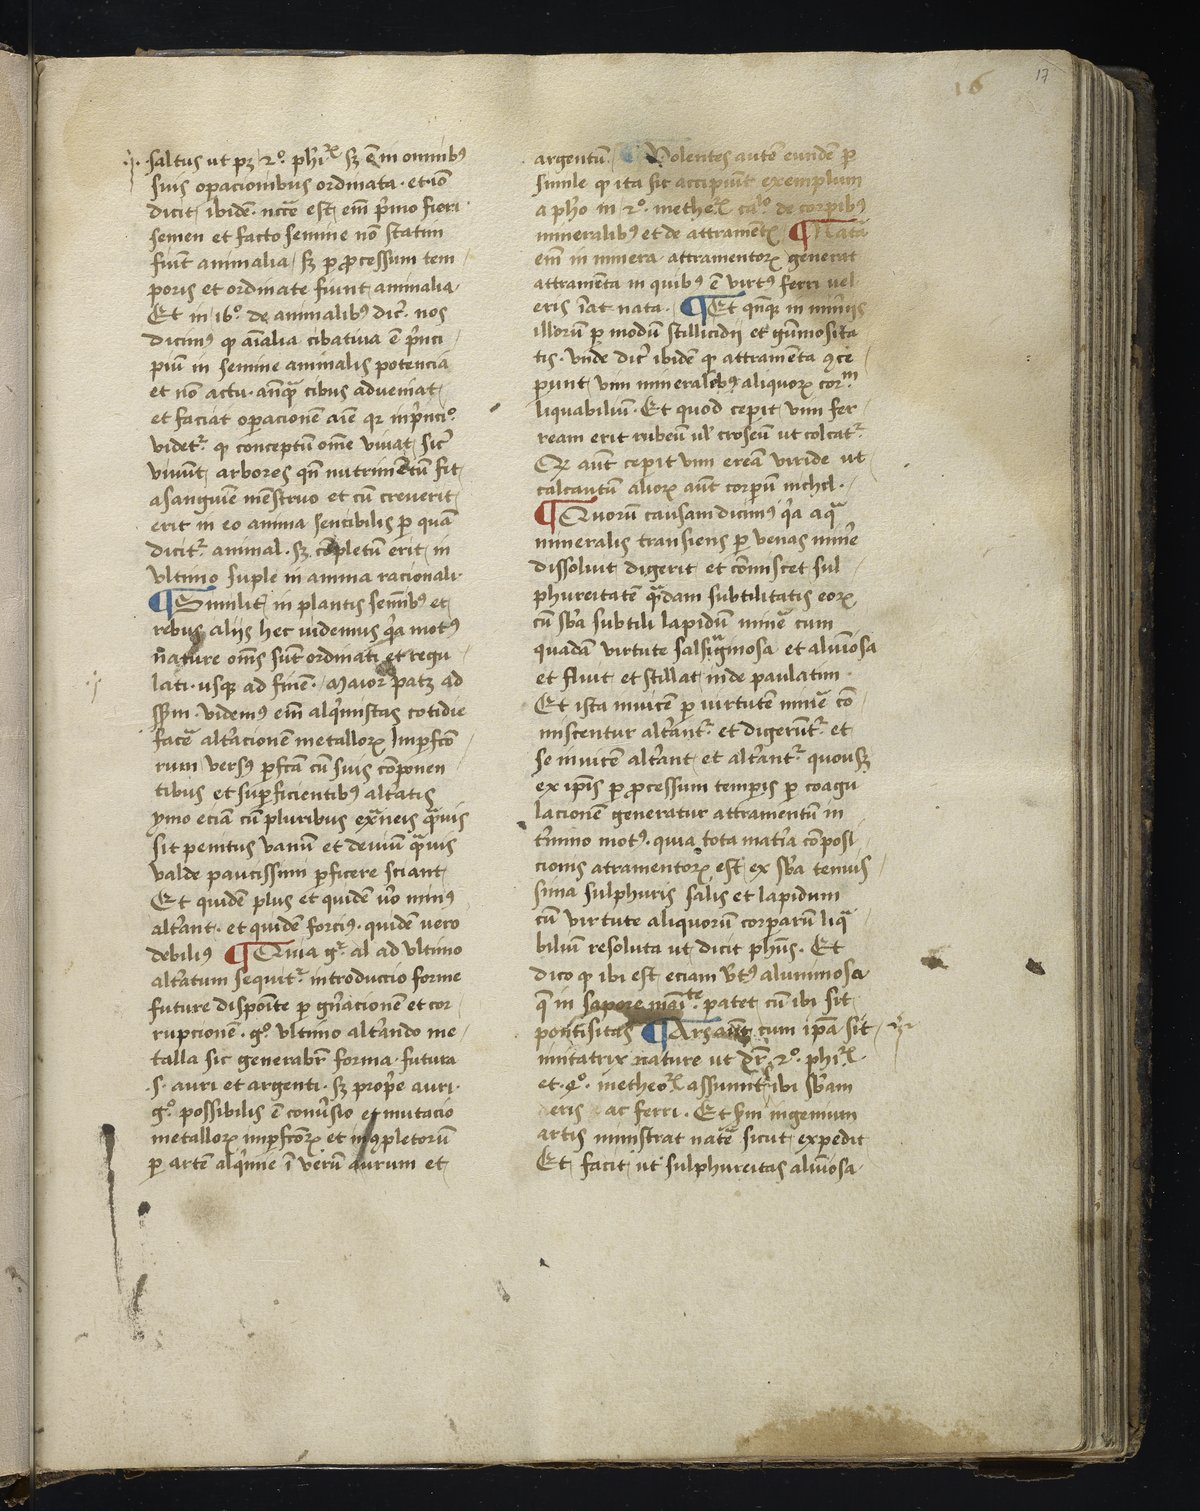 16
17
saltus ut pꝫ 2º phiꝝ sꝫ ē in omnibꝰ
suis opacionibus ordinata · et iō
dicit ibidē · nccē est em̄ p̄mo fieri
semen et facto semine nō statim
fiūt animalia / sꝫ ꝑ ꝓcessum tem
poris et ordinate fiunt animalia ·
Et in 16º de animalibꝰ dic̄ · nos
dicimꝰ ꝙ aīalia cibatiua ē p̄nci
piū in semine animalis potencia
et nō actu · anq̄ cibus adueniat
et faciat opacionē aīe qr in p̄ncº
videtᷣ ꝙ conceptū om̄e viuat sic̄
viuūt arbores qn̄ nutrimētū fit
a sanguīe mēstruo et cū creuerit
erit in eo anima sencibilis ꝑ quā
dicitᷣ animal · sꝫ cōpletū erit in
vltimo suple in anima racionali ·
¶ Similit̄ in plantis semībꝰ et
rebus aliis hec videmus q̄a motꝰ
nature om̄s sūt ordinati et regu
lati · usqꝫ ad finē · maior patꝫ ad
sēm · videmꝰ em̄ alq̄mistas cotidie
facē alt̄acionē metalloꝝ Imꝑfcō
rum versꝰ ꝑfcā cū suis cōponen
tibus et suꝑficientibꝰ alt̄atis
ymo eciā cū pluribus ex̄neis q̄uis
sit penitus vanū et deuiū q̄uis
valde paucissimi ꝑficere sciant
Et quidē plus et quidē v̄o minꝰ
alt̄ant · et quidē forciꝰ · quidē vero
debiliꝰ ¶ Quia gᷣ al ad vltimo
alt̄atum sequitᷣ introduccio forme
future disponīte ꝑ gn̄acionē et cor
rupcionē · gº vltimo alt̄ando me
talla sic generabr̄ forma · futura
· s · auri et argenti · sꝫ prop̄e auri ·
gº possibilis ē conūsio et mutacio
metalloꝝ imꝑfcōꝝ et inꝯpletorū
ꝑ artē alq̄mie ī verū aurum et
argentū · Volentes autē eundē ꝑ
simile ꝙ ita sit accipiūt exemplum
a ph̄o in 2º metheoꝝ caº de corꝑibꝰ
mineralibꝰ et de attramentꝭ ¶ Natā
em̄ in minera attramentoꝝ generat
attramēta in quibꝰ ē virtꝰ ferri vel
eris īat nata · ¶ Et qn̄qꝫ in min̄iis
illorū ꝑ modū stillicidii et gūmosita
tis · vnde dic̄ ibidē ꝙ attramēta ꝯce
punt vim mineralibꝰ aliquoꝝ corᵐ
liquabiliū · Et quod cepit vim fer
ream erit rubeū ul̄ croseū ut colcatᷣ
Qꝫ aūt cepit vim ereā viride ut
calcantū alioꝝ aūt corpū nichil ·
¶ Quorū causam dicimꝰ q̄a aq̄
mineralis transiens ꝑ venas min̄e
dissoluit digerit et cōmiscet sul
phureitatē q̄dam subtilitatis eoꝝ
cū sb̄a subtili lapidū minē cum
quadā virtute salsiginosa et alūiosa
et fluit et stillat inde paulatim
Et ista inuicē ꝑ virtutē minē cō
miscentur alt̄antᷣ et digerūtᷣ et
se inuicē alt̄ant et alt̄antᷣ quousꝫ
ex ip̄is ꝑ ꝓcessum tempis ꝑ coagu
lacionē generatur attramentū in
t̄mino motꝰ · quia tota mat̄ia cōposi
cionis atramentoꝝ est ex sb̄a tenuis
sima sulphuris salis et lapidum
cū virtute aliquorū corparū liq̄
biliū resoluta ut dicit ph̄us · Et
dico ꝙ ibi est eciam v̄tꝰ aluminosa
q̄ in sapore patet cū ibi sit
pontisitas ¶ Ars aūt cum ip̄a sit
imitatrix nature ut dr̄ 2º phiꝝ ·
et · 4º · metheoꝝ assumit ibi sb̄am
eris ac ferri · Et sm̄ ingenium
artis ministrat natē sicut expedit
Et facit ut sulphureitas alūiosa